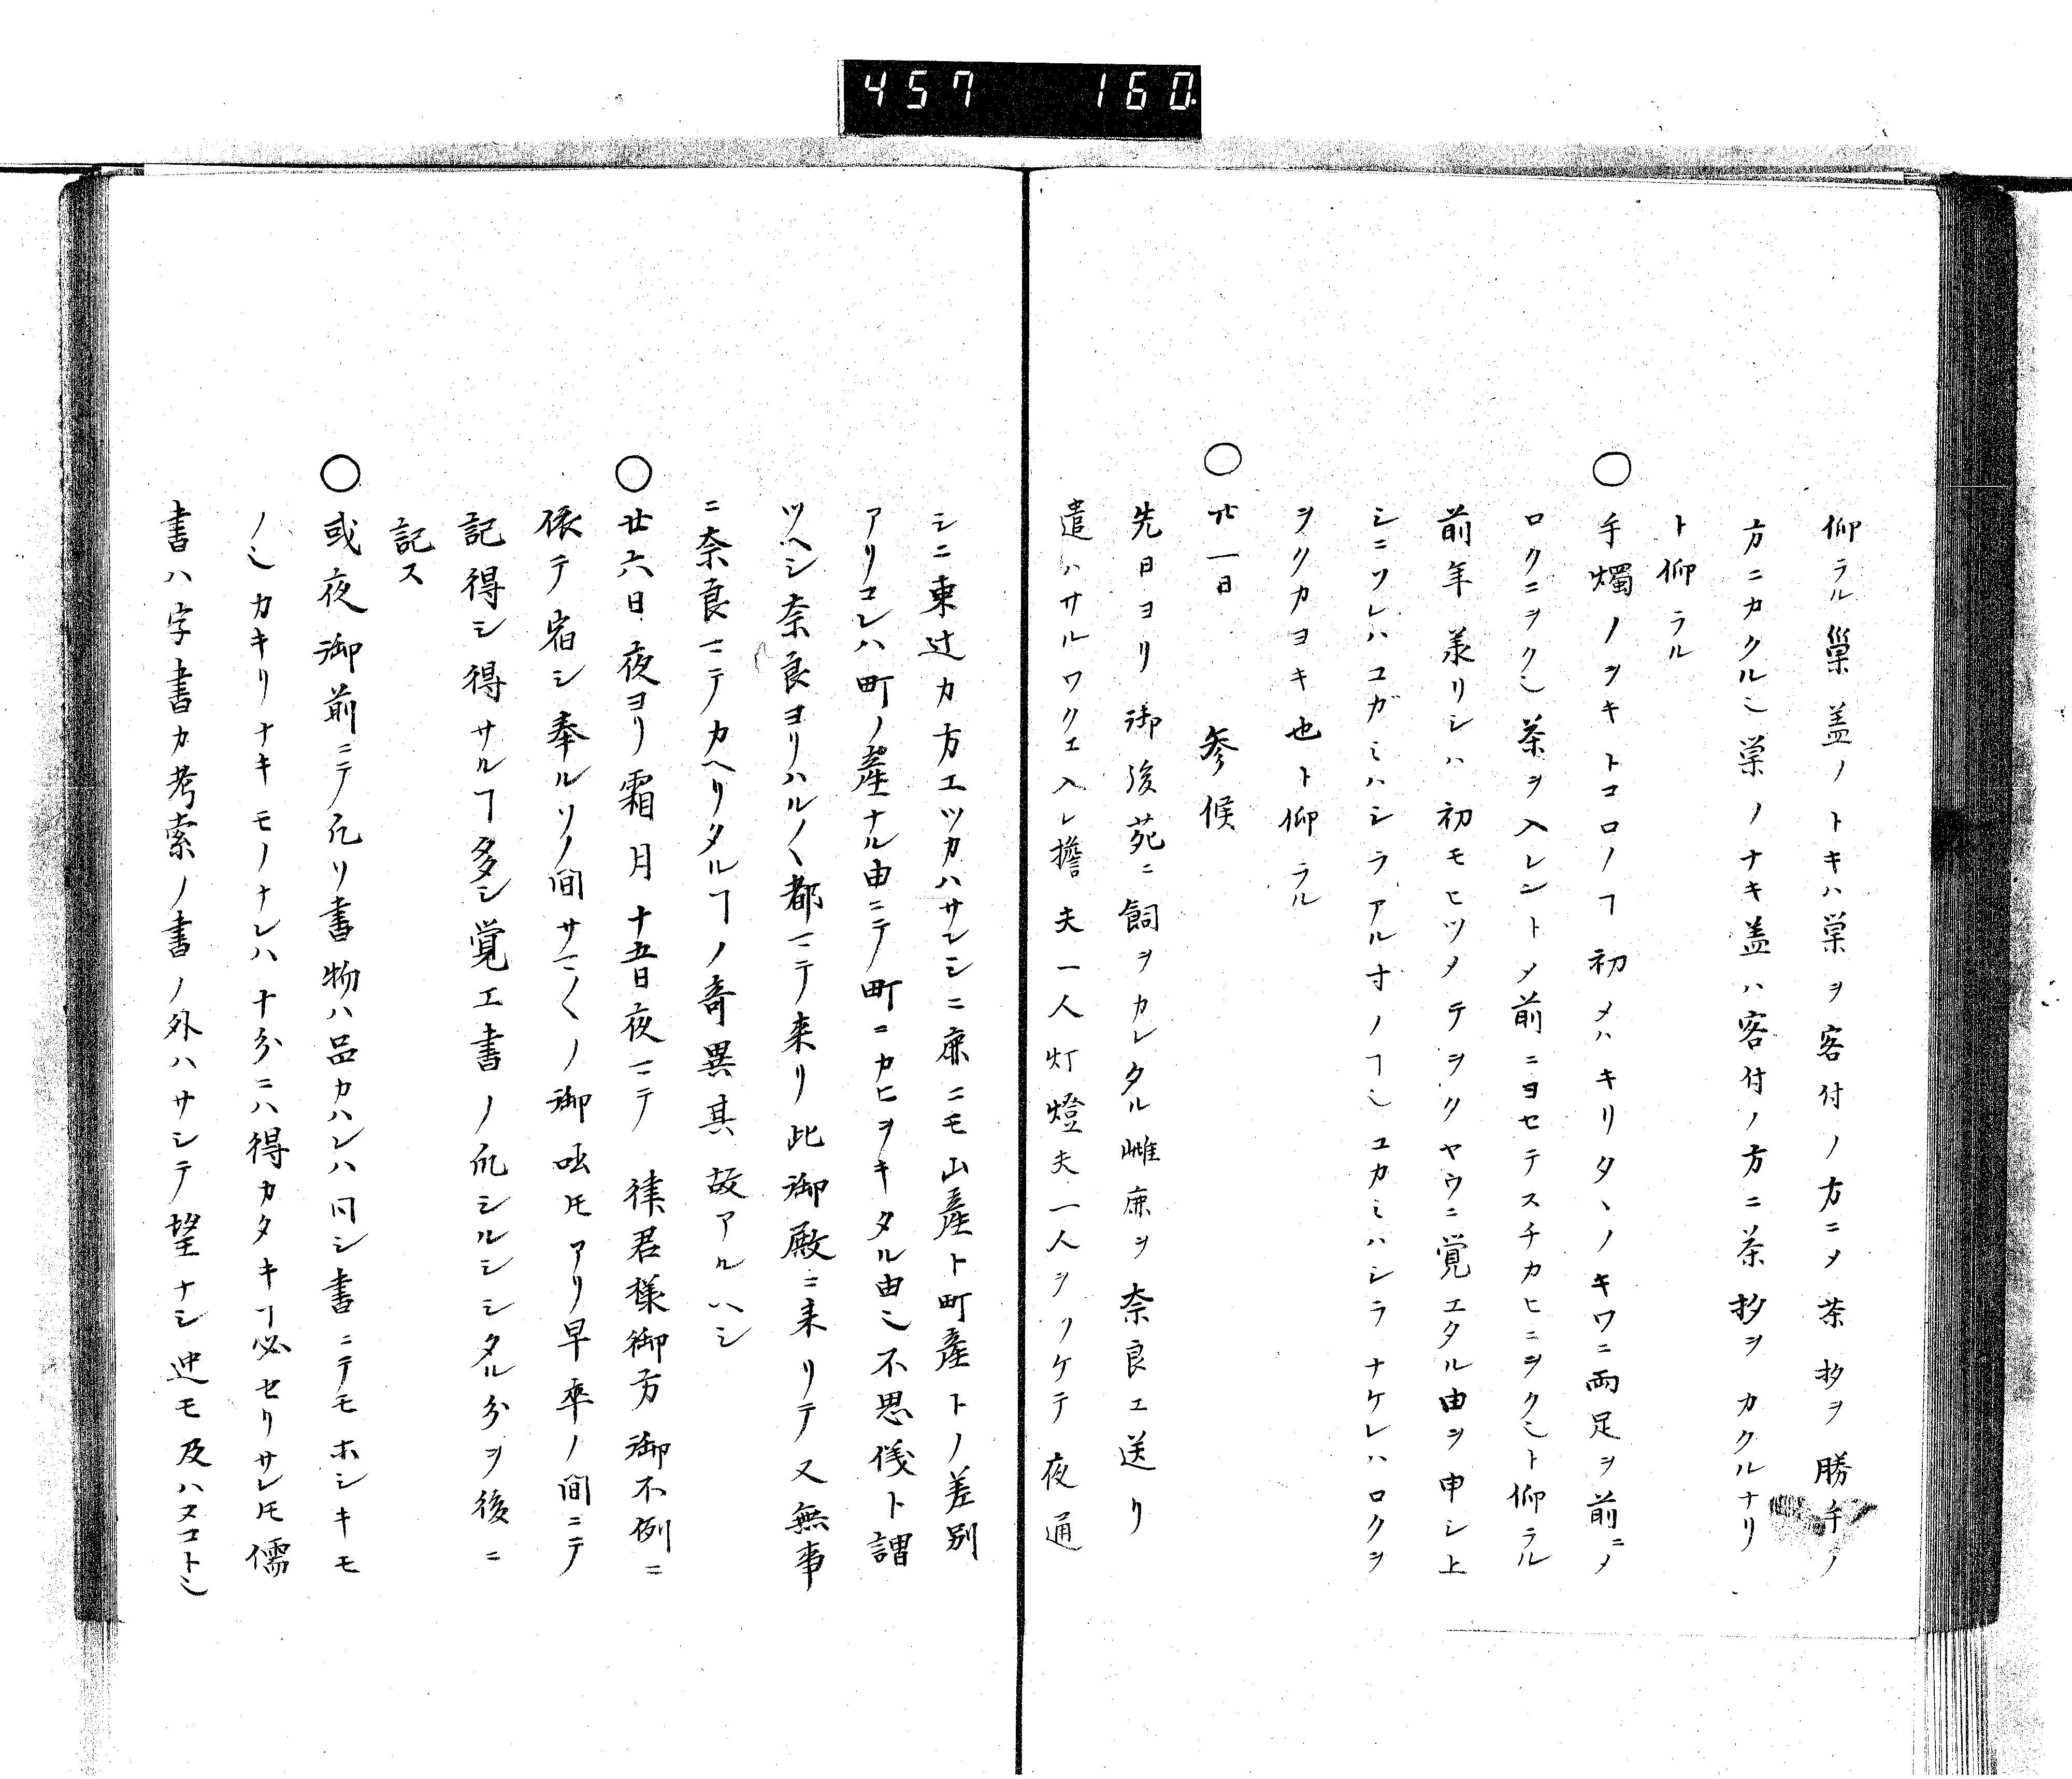 457 160.
仰ラル巣盖ノトキハ巣ヲ客付ノ方ニメ茶杓ヲ勝手ノ
方ニカクル〆巣ノナキ盖ハ客付ノ方ニ茶杓ヲカクルナリ
ト仰ラル
○手燭ノヲキトコロノヿ初メハキリタヽノキワニ両足ヲ前ニ〆
ロクニヲク〆茶ヲ入レントメ前ニヨセテスチカヒニヲク〆ト仰ラル
前年羕リシハ初モヒツメテヲクヤウニ覚エタル由ヲ申シ上
シニソレハコガミハシラアル寸ノヿ〆ユカミハシラナケレハロクヲ
ヲクカヨキ也ト仰ラル
○廿一日 参候
先日ヨリ御後苑ニ飼ヲカレタル雌鹿ヲ奈良エ送リ
遣ハサルワクエ入レ擔夫一人灯燈夫一人ヲツケテ夜通
シニ東辻カ方エツカハサレシニ鹿ニモ山産ト町産トノ差別
アリコレハ町ノ産ナル由ニテ町ニカヒヲキタル由〆不思儀ト謂
ツヘシ奈良ヨリハル〱都ニテ来リ此御殿ニ来リテ又無事
ニ奈良ニテカヘリタルヿノ奇異其故アルヘシ
○廿六日夜ヨリ霜月十五日夜ニテ 律君様御方御不例ニ
依テ宿シ奉ルソノ間サマ〱ノ御咄𪜈アリ早卒ノ間ニテ
記得シ得サルヿ多シ覚エ書ノ爪シルシシタル分ヲ後ニ
記ス
○或夜御前ニテ爪リ書物ハ品カハレハ同シ書ニテモホシキモ
ノ〆カキリナキモノナレハ十分ニハ得カタキヿ必セリサレ𪜈儒
書ハ字書カ考索ノ書ノ外ハサシテ望ナシ迚モ及ハヌコト〆